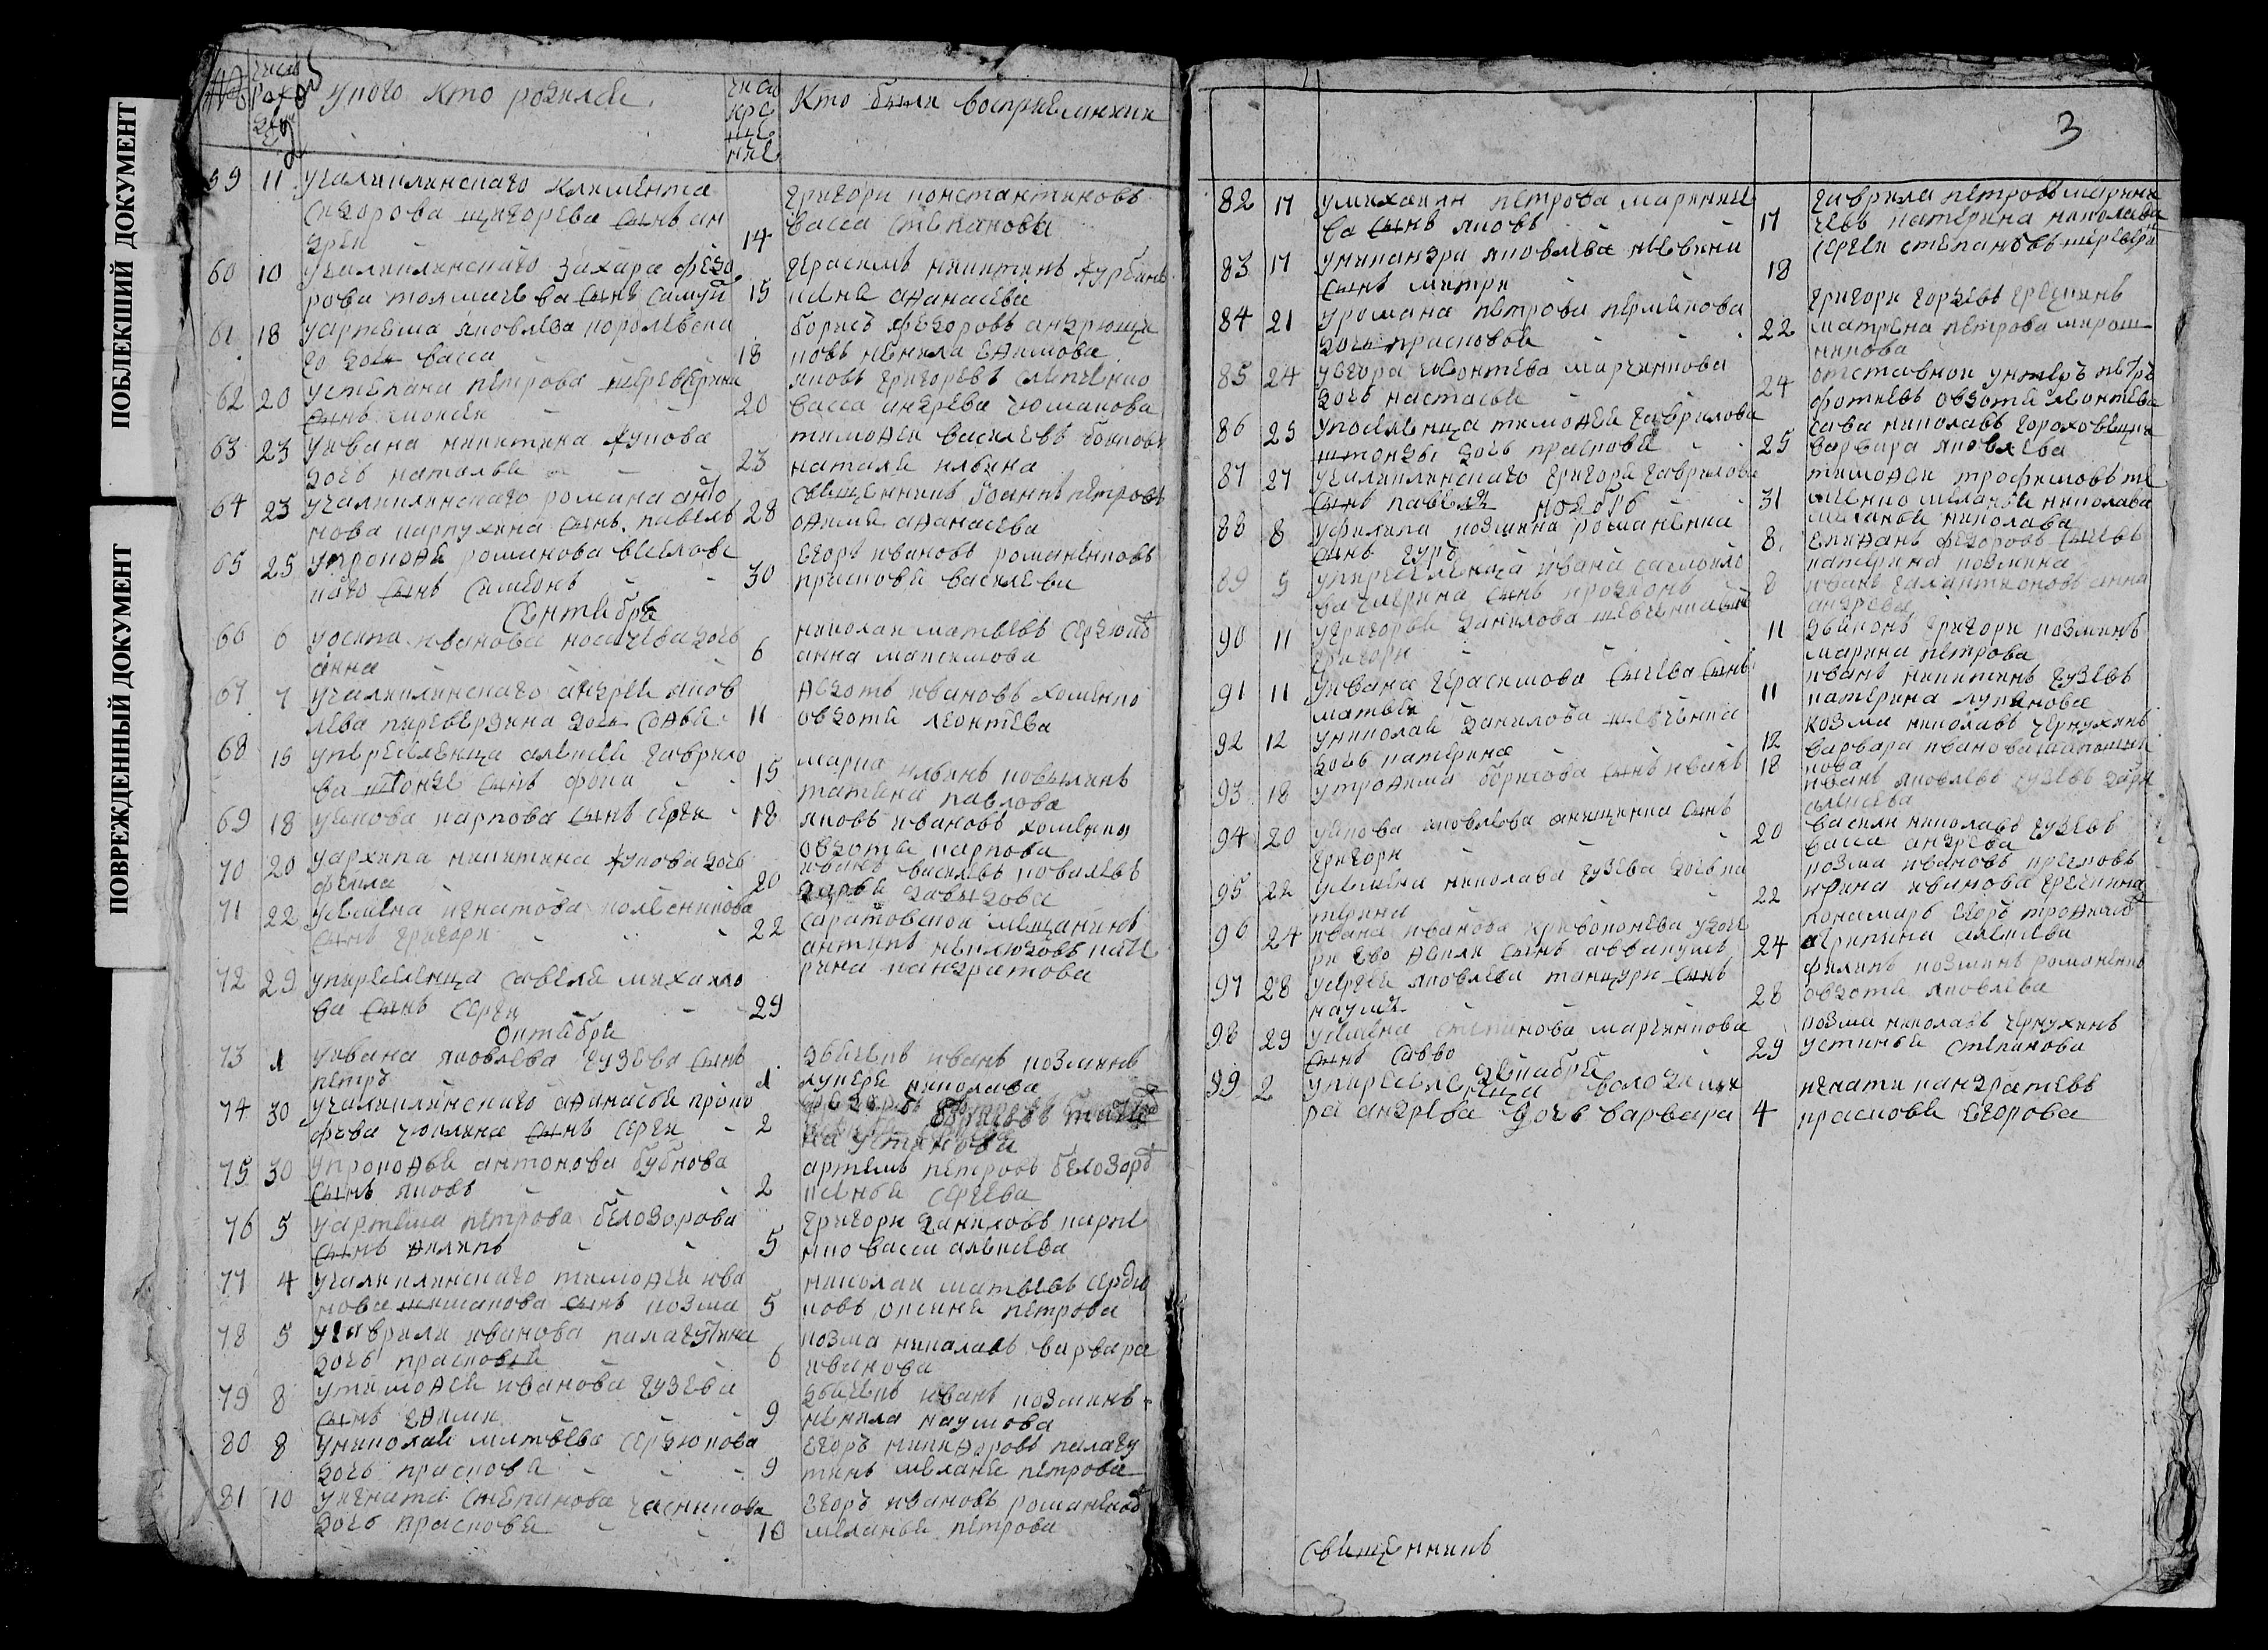 ПОБЛЕКШИЙ ДОКУМЕНТ
ПОВРЕЖДЕННЫЙ ДОКУМЕНТ
у ного кто родился
числ кре ще ние
кто были восприемники
59 11 учаликлинскаго климента
сидорова щигорева сынъ ан
дреи 14
григори константиновъ
васса степанова
60 10 учаликлинскаго захара федо
рова толмачева сынъ самуи 15
герасимъ никитинъ курбан
ксене афанасева
61 18 уартема яковлева королевска
го дочь васса 18
борисъ федоровъ андрющи
ковъ ненила ефимова
62 20 устепана петрова шереверина
сынъ моисеи 20
яковъ григоревъ слепченко
васса андрева чюмакова
63 23 увана никитина жукова
дочь наталья 23
тимофеи василевъ
наталя илина
64 23 учаликлинскаго романа анто
нова карпухина сынъ павелъ 28
священникъ иоаннъ петровъ
офимя афанасева
65 25 упрокофе романова веселовс
каго сынъ симеонъ 30
егоръ ивановъ романенковъ
прасковя василева
сентября
66 6 уосипа иванова носачева дочь
анна 6
николаи матвеевъ сердюковъ
анна максимова
67 7 учаликлинскаго андрея яков
лева переверзина дочь софья 11
федотъ ивановъ хоменко
овдотя леонтева
68 15 упереселенца алексея гаврило
ва штонде сынъ фока 15
марка илинъ
татьяна павлова
69 18 уякова карпова сынъ сергеи 18
яковъ ивановъ хоменко
овдотя карпова
70 20 уархипа никитина жукова дочь
фекла 20
иванъ василевъ ковалевъ
дарья давыдова
71 22 усемена игнатова колесникова
сынъ григори 22
саратовской мещанинъ
антипъ неклюдовъ кате
рина панкратова
72 29 упереселенца савеля михаило
ва сынъ сергеи 29
октября
73 1 увана яковлева гузева сынъ
петръ 1
дьячекъ иванъ козминъ
лукеря николаева
74 30 учаликлинскаго афанасья проко
фева чюлкина сынъ сергеи 2
на устинова
75 30 упрокофья антонова бубнова
сынъ яковъ 2
артемъ петровъ белозоръ
ксенья сергева
76 5 уартема петрова белозорова
сынъ филипъ 5
григори даниловъ
васса алексева
77 4 учаликлинскаго тимофея ива
нова шишакова сынъ козма 5
николаи матвеевъ сердю
ковъ оксиня петрова
78 5 угаврилы иванова палагутина
дочь прасковья 6
козма николаевъ варвара
иванова
79 8 утимофея иванова гузева
сынъ ефимъ 9
дьячекъ иванъ козминъ
ненила наумова
80 8 униколая матвеева сердюкова
дочь прасковя 9
егоръ никифоровъ палагу
тинъ меланя петрова
81 10 уигната степанова часникова
дочь прасковя 10
егоръ ивановъ романенковъ
меланья петрова
3
82 17 умихаила петрова мариниче
ва сынъ яковъ 17
гаврила петровъ марини
чевъ катерина николаева
83 17 уникандра яковлева
сынъ митри 18
сергеи степановъ шеревери
84 21 уромана петрова пермекова
дочь прасковья 22
григори гордевъ гречкинъ
матрена петрова мирош
никова
85 24 уегора леонтева марченкова
дочь настасья 24
отставной унтеръ петръ
фотиевъ овдотя леонтева
86 25 упоселенца тимофея гаврилова
штонды дочь прасковя 25
сава николаевъ гороховцкии
варвара яковлева
87 27 учаликлинскаго григоря гаврилова
сынъ павелъ 31
тимофеи трофимовъ
меланья николаева
ноября
88 8 уфилипа козмина романенка
сынъ гуръ 8
федоровъ сычевъ
катерина козмина
89 5 упереселенца ивана самоило
ва чмерина сынъ прохонъ 8
иванъ галактионовъ анна
андрева
90 11 угригорья данилова шевченка сынъ
григори 11
дьяконъ григори козминъ
марина петрова
91 11 увана герасимова сычева сынъ
матвеи 11
иванъ никитинъ гузевъ
катерина лукянова
92 12 униколая данилова шевченка
дочь катерина 12
козма николаевъ чернухинъ
варвара иванова
93 18 утрофима борисова сынъ иванъ 18
иванъ яковлевъ гузевъ дарья
алексева
94 20 уякова яковлева анищенка сынъ
григори 20
василя николаевъ гузевъ
васса андрева
95 22 усемена николаева гузева дочь ка
терина 22
козма ивановъ
ирина иванова гречкина
96 24 ивана иванова кривоконева у дочери
ево фекли сынъ аввакумъ 24
понамарь егоръ трофимовъ
агрипина алексева
97 28 усергея яковлева танцури сынъ
наумъ 28
филипъ козминъ романенко
овдотя яковлева
98 29 усемена степанова марченкова
сынъ савво 29
козма николаевъ чернухинъ
устинья степанова
декабря
99 2 упереселенца володими
ра андрева дочь варвара 4
игнати панкратевъ
прасковя егорова
священникъ